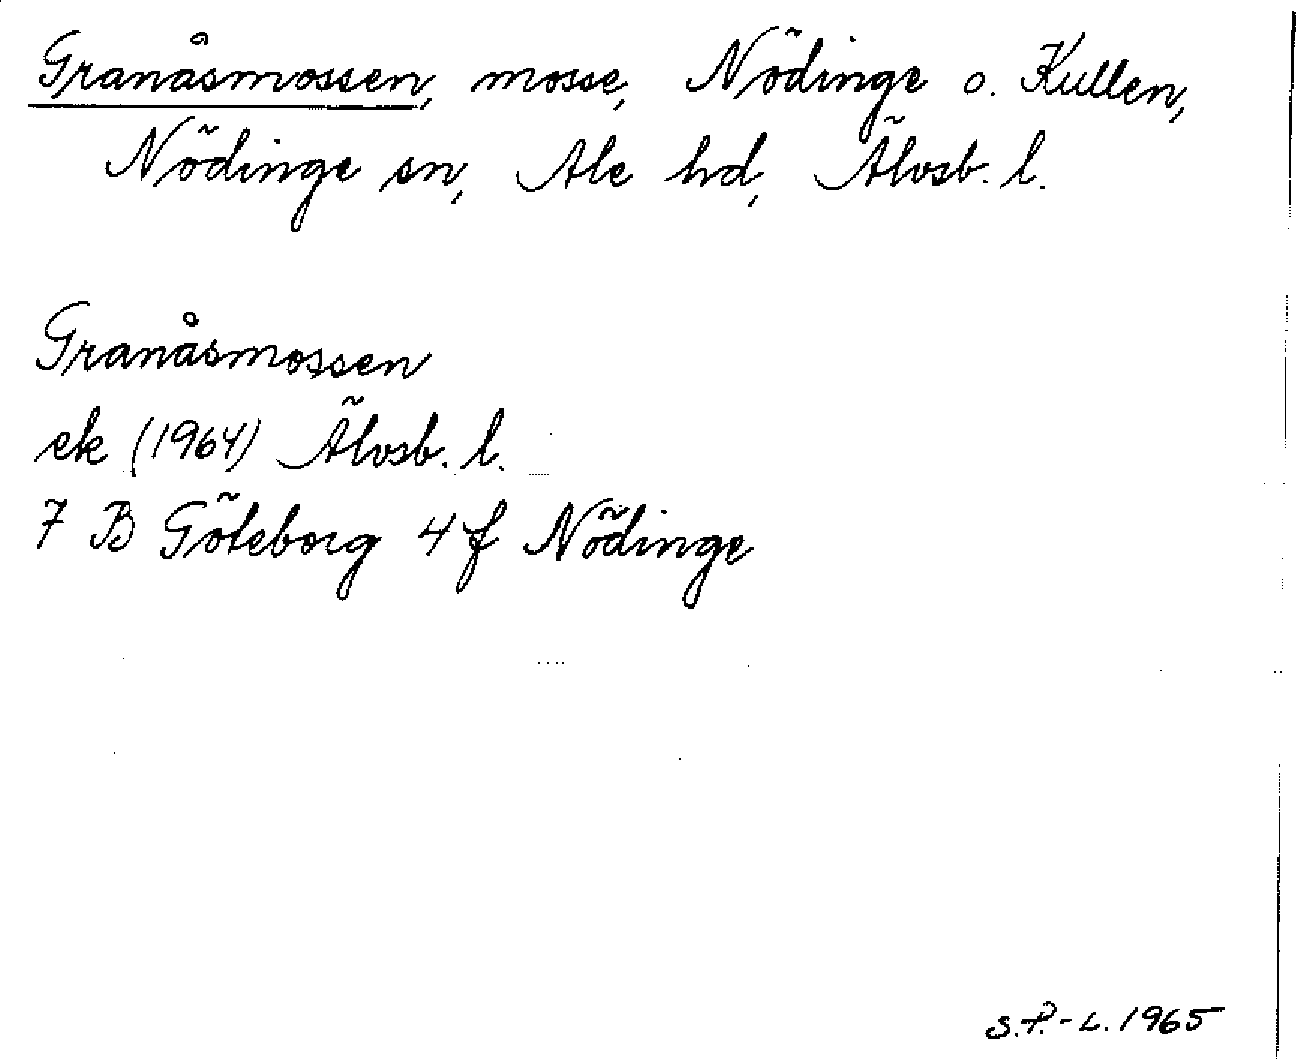 Granåsmossen, mosse, Nödinge o. Kullen,
Nödinge sn, Ale hd, Älvsb. l.
Granåsmossen
ek (1964) Älvsb. l.
7 B Göteborg 4 f Nödinge
S.P.-L. 1965